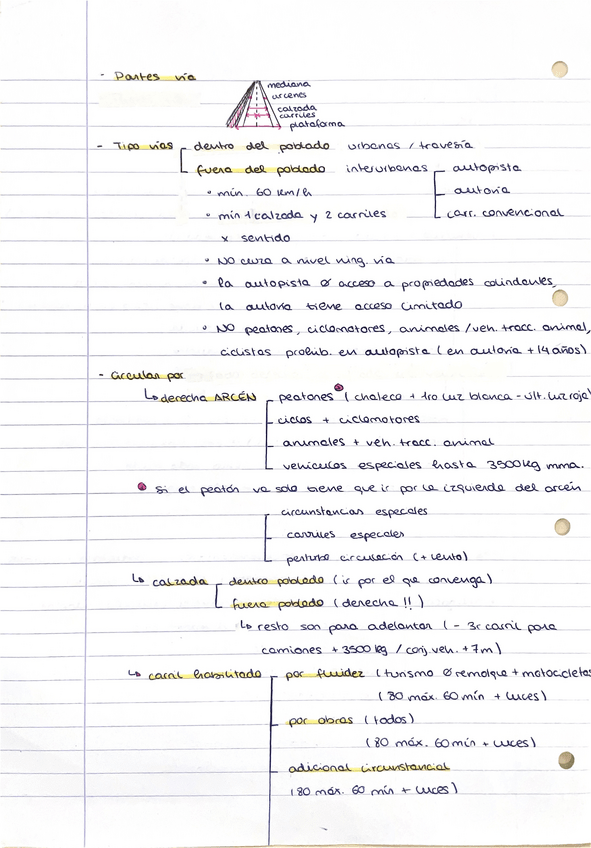 - Partes vía
mediana
arcenes
calzada
carriles
plataforma
- Tipo vías dentro del poblado urbanas / travesía
fuera del poblado interurbanas autopista
• mín. 60 km/h autovía
• min 1 calzada y 2 carriles carr. convencional
x sentido
• NO cruza a nivel ning. vía
• la autopista Ø acceso a propiedades colindantes,
la autovía tiene acceso limitado
• NO peatones, ciclomotores, animales / veh. tracc. animal,
ciclistas prohib. en autopista (en autovía +14 años)
- Circular por
↳ derecha ARCÉN peatones (chaleco + 1ro luz blanca - últ. luz roja)
ciclos + ciclomotores
animales + veh. tracc. animal
vehículos especiales hasta 3500kg mma.
si el peatón va solo tiene que ir por la izquierda del arcén
circunstancias especiales
carriles especiales
perturbe circulación (+ lento)
↳ calzada dentro poblado (ir por el que convenga)
fuera poblado (derecha !!)
↳ resto son para adelantar (- 3r carril para
camiones +3500 kg / conj. veh. +7m)
↳ carril habilitado por fluidez (turismo Ø remolque + motocicletas
(80 máx. 60 mín + luces)
por obras (todos)
(80 máx. 60 mín + luces)
adicional circunstancial
(80 máx. 60 mín + luces)